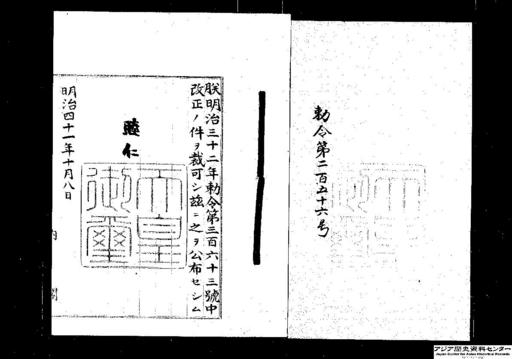 勅令第二百五十六号
朕明治三十二年勅令第三百六十三號中
改正ノ件ヲ裁可シ茲ニ之ヲ公布セシム
睦仁
天皇御璽
明治四十一年十月八日
内閣
アジア歴史資料センター
Japan Center for Asian Historical Records